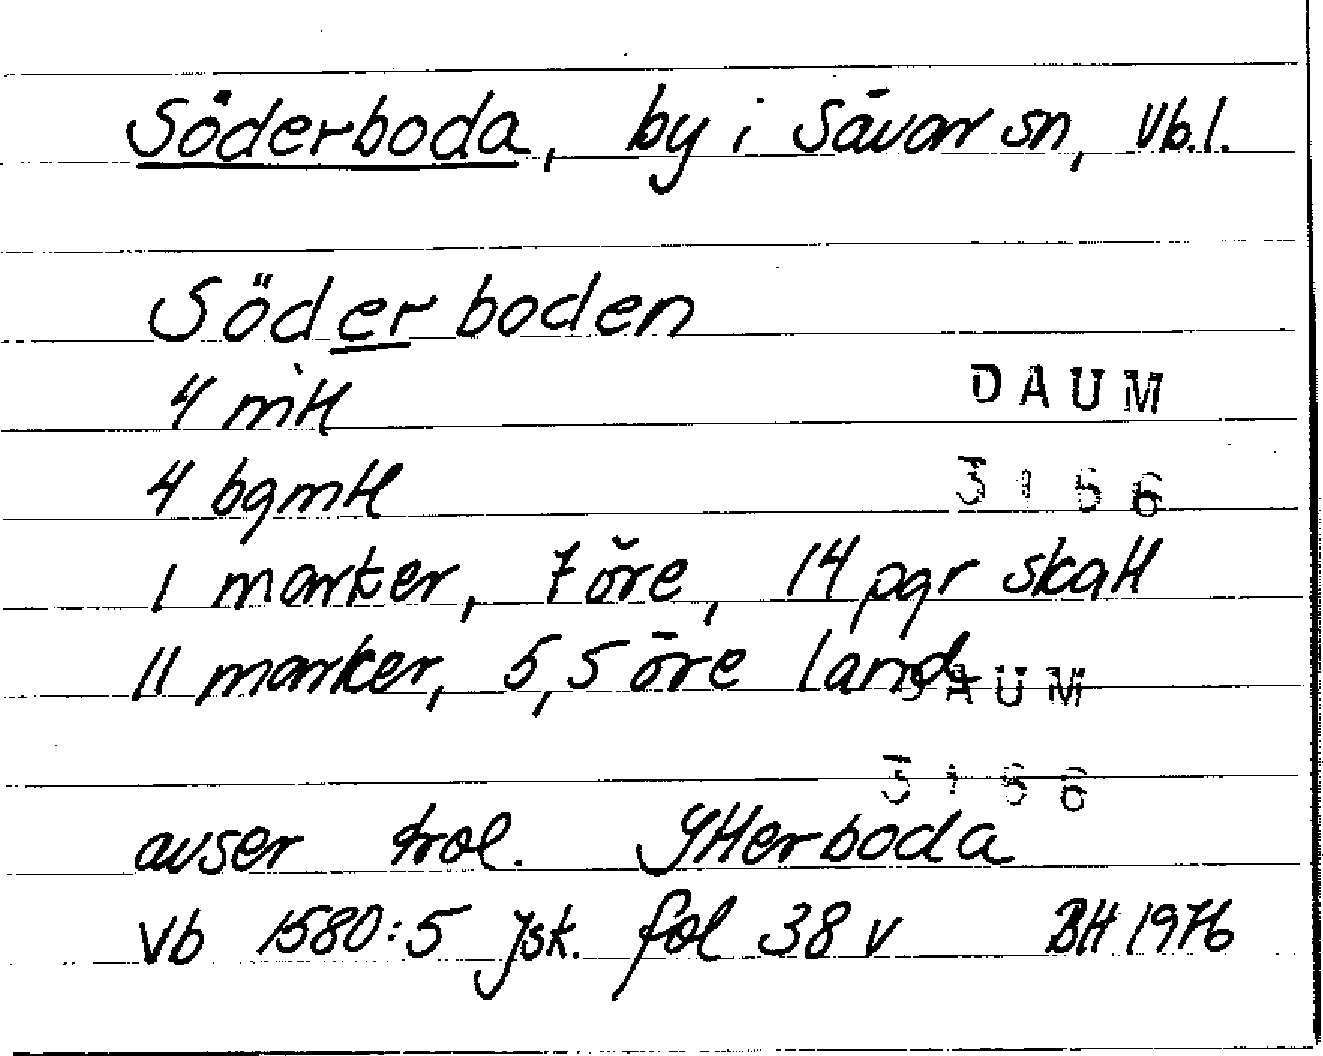 Söderboda, by i Sävar sn, Vb.l.
Söderboden
4 mtl
4 bgmtl
DAUM
3166
1 marker, 7 öre, 14 pgr skatt
11 marker, 5,5 öre land
DAUM
3166
avser trol. Ytterboda
Vb 1580:5 Jsk. fol 38 v BH 1976